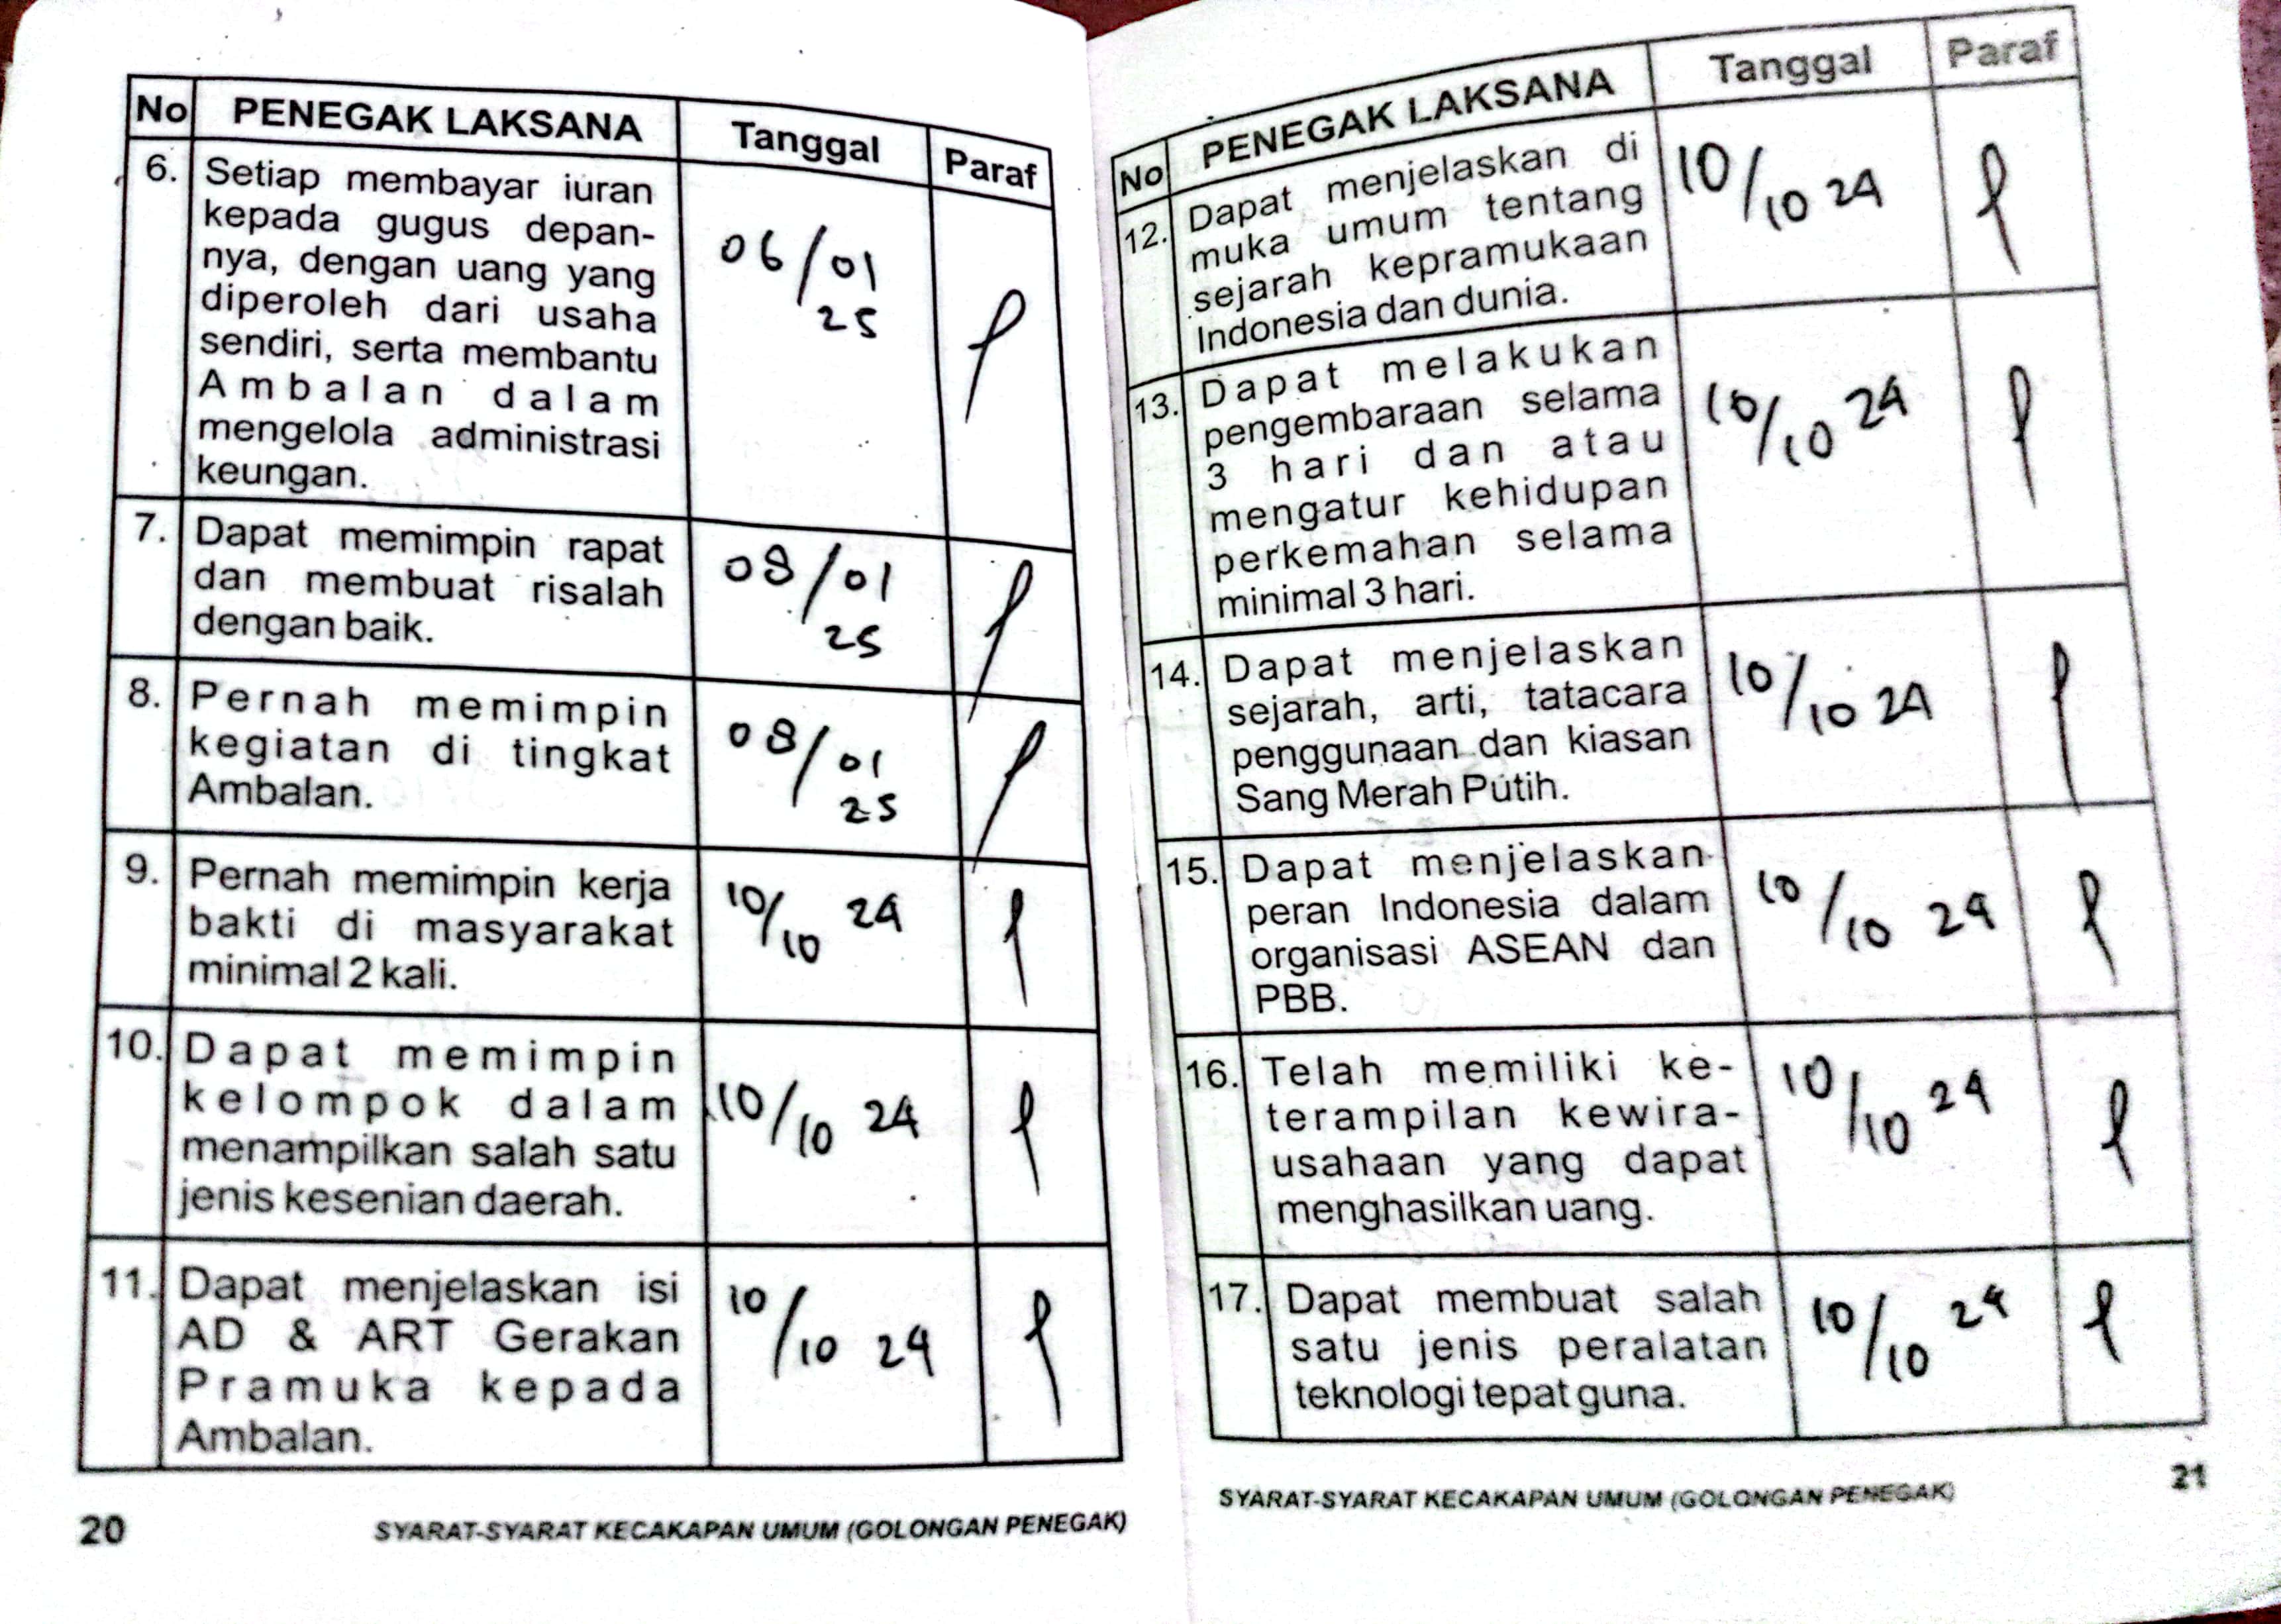 No PENEGAK LAKSANA Tanggal Paraf
6. Setiap membayar iuran
kepada gugus depan-
nya, dengan uang yang
diperoleh dari usaha
sendiri, serta membantu
Ambalan dalam
mengelola administrasi
keungan.
06/01
25
7. Dapat memimpin rapat
dan membuat risalah
dengan baik.
08/01
25
8. Pernah memimpin
kegiatan di tingkat
Ambalan.
08/01
25
9. Pernah memimpin kerja
bakti di masyarakat
minimal 2 kali.
10/10 24
10. Dapat memimpin
kelompok dalam
menampilkan salah satu
jenis kesenian daerah.
10/10 24
11. Dapat menjelaskan isi
AD & ART Gerakan
Pramuka kepada
Ambalan.
10/10 24
20 SYARAT-SYARAT KECAKAPAN UMUM (GOLONGAN PENEGAK)
No PENEGAK LAKSANA Tanggal Paraf
12. Dapat menjelaskan di
muka umum tentang
sejarah kepramukaan
Indonesia dan dunia.
10/10 24
13. Dapat melakukan
pengembaraan selama
3 hari dan atau
mengatur kehidupan
perkemahan selama
minimal 3 hari.
10/10 24
14. Dapat menjelaskan
sejarah, arti, tatacara
penggunaan dan kiasan
Sang Merah Putih.
10/10 24
15. Dapat menjelaskan
peran Indonesia dalam
organisasi ASEAN dan
PBB.
10/10 24
16. Telah memiliki ke-
terampilan kewira-
usahaan yang dapat
menghasilkan uang.
10/10 24
17. Dapat membuat salah
satu jenis peralatan
teknologi tepat guna.
10/10 24
SYARAT-SYARAT KECAKAPAN UMUM (GOLONGAN PENEGAK) 21